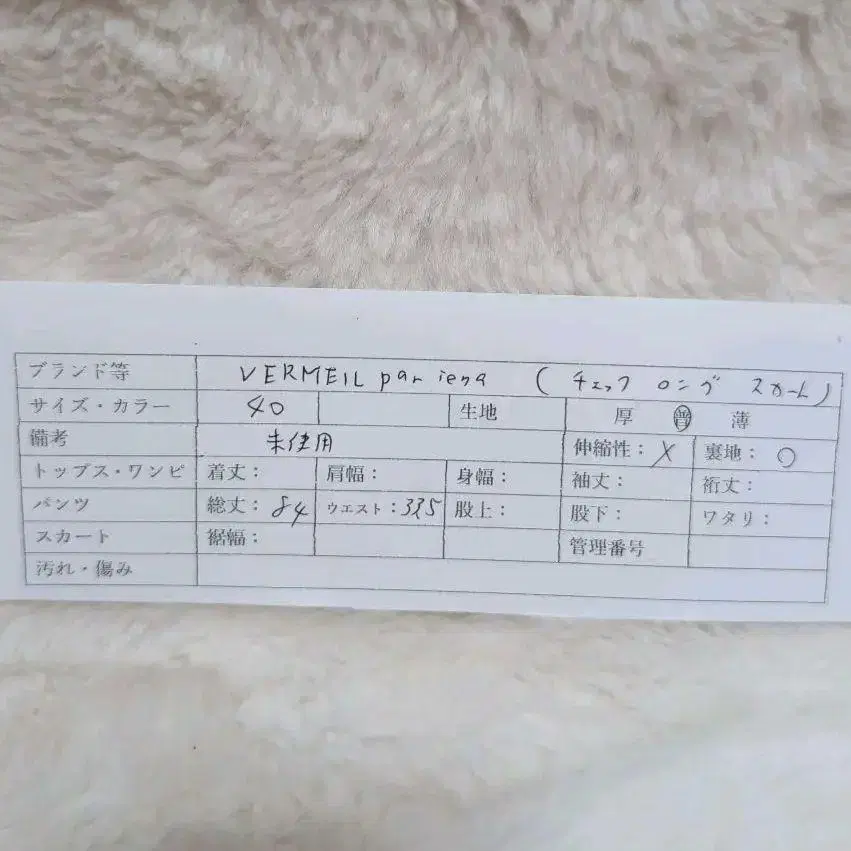 ブランド等 VERMEIL par iena (チェック ロング スカート)
サイズ・カラー 40 生地 厚 普 薄
備考 未使用 伸縮性: X 裏地: ○
トップス・ワンピ 着丈: 肩幅: 身幅: 袖丈: 裄丈:
パンツ 総丈: 84 ウエスト: 33.5 股上: 股下: ワタリ:
スカート 裾幅: 管理番号
汚れ・傷み